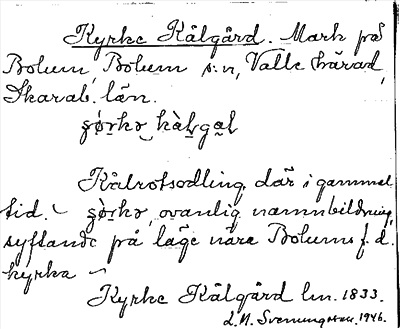 Kyrke Kålgård. Mark på
Bolum, Bolum s:n, Valle härad,
Skarab. län.
Kålrotsodling där i gammal
tid. – ovanlig namnbildning,
syftande på läge nära Bolums f.d.
kyrka –
Kyrke Kålgård lm. 1833.
S. Svenungsson. 1946.